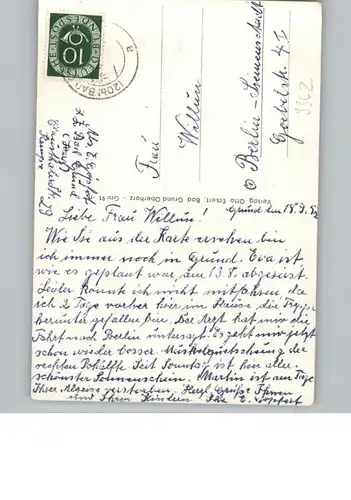 DEUTSCHE BUNDESPOST
10
(20b) BAD
Frau
Willun
Berlin-Siemensstadt
Goebelstr.
Verlag Otto Eckert, Bad Grund/Oberharz
z.Z. Bad Grund
(Harz)
Grund den
Liebe Frau Willun!
Wie Sie aus der Karte ersehen bin
ich immer noch in Grund. Eva ist
wie es geplant war, am 13.8. abgereist.
Leider konnte ich nicht mitfahren da
ich 2 Tage vorher hier im Hause die Treppe
heruntergefallen bin. Der Arzt hat mir die
Fahrt nach Berlin untersagt. Es geht mir jetzt
schon wieder besser. Muskelquetschung der
rechten Seit Sonntag ist hier aller-
schönster Sonnenschein. Martin ist am Tage
Ihrer Abreise verstorben. Herzl. Grüße Ihnen
und Ihren Kindern Ihre E.